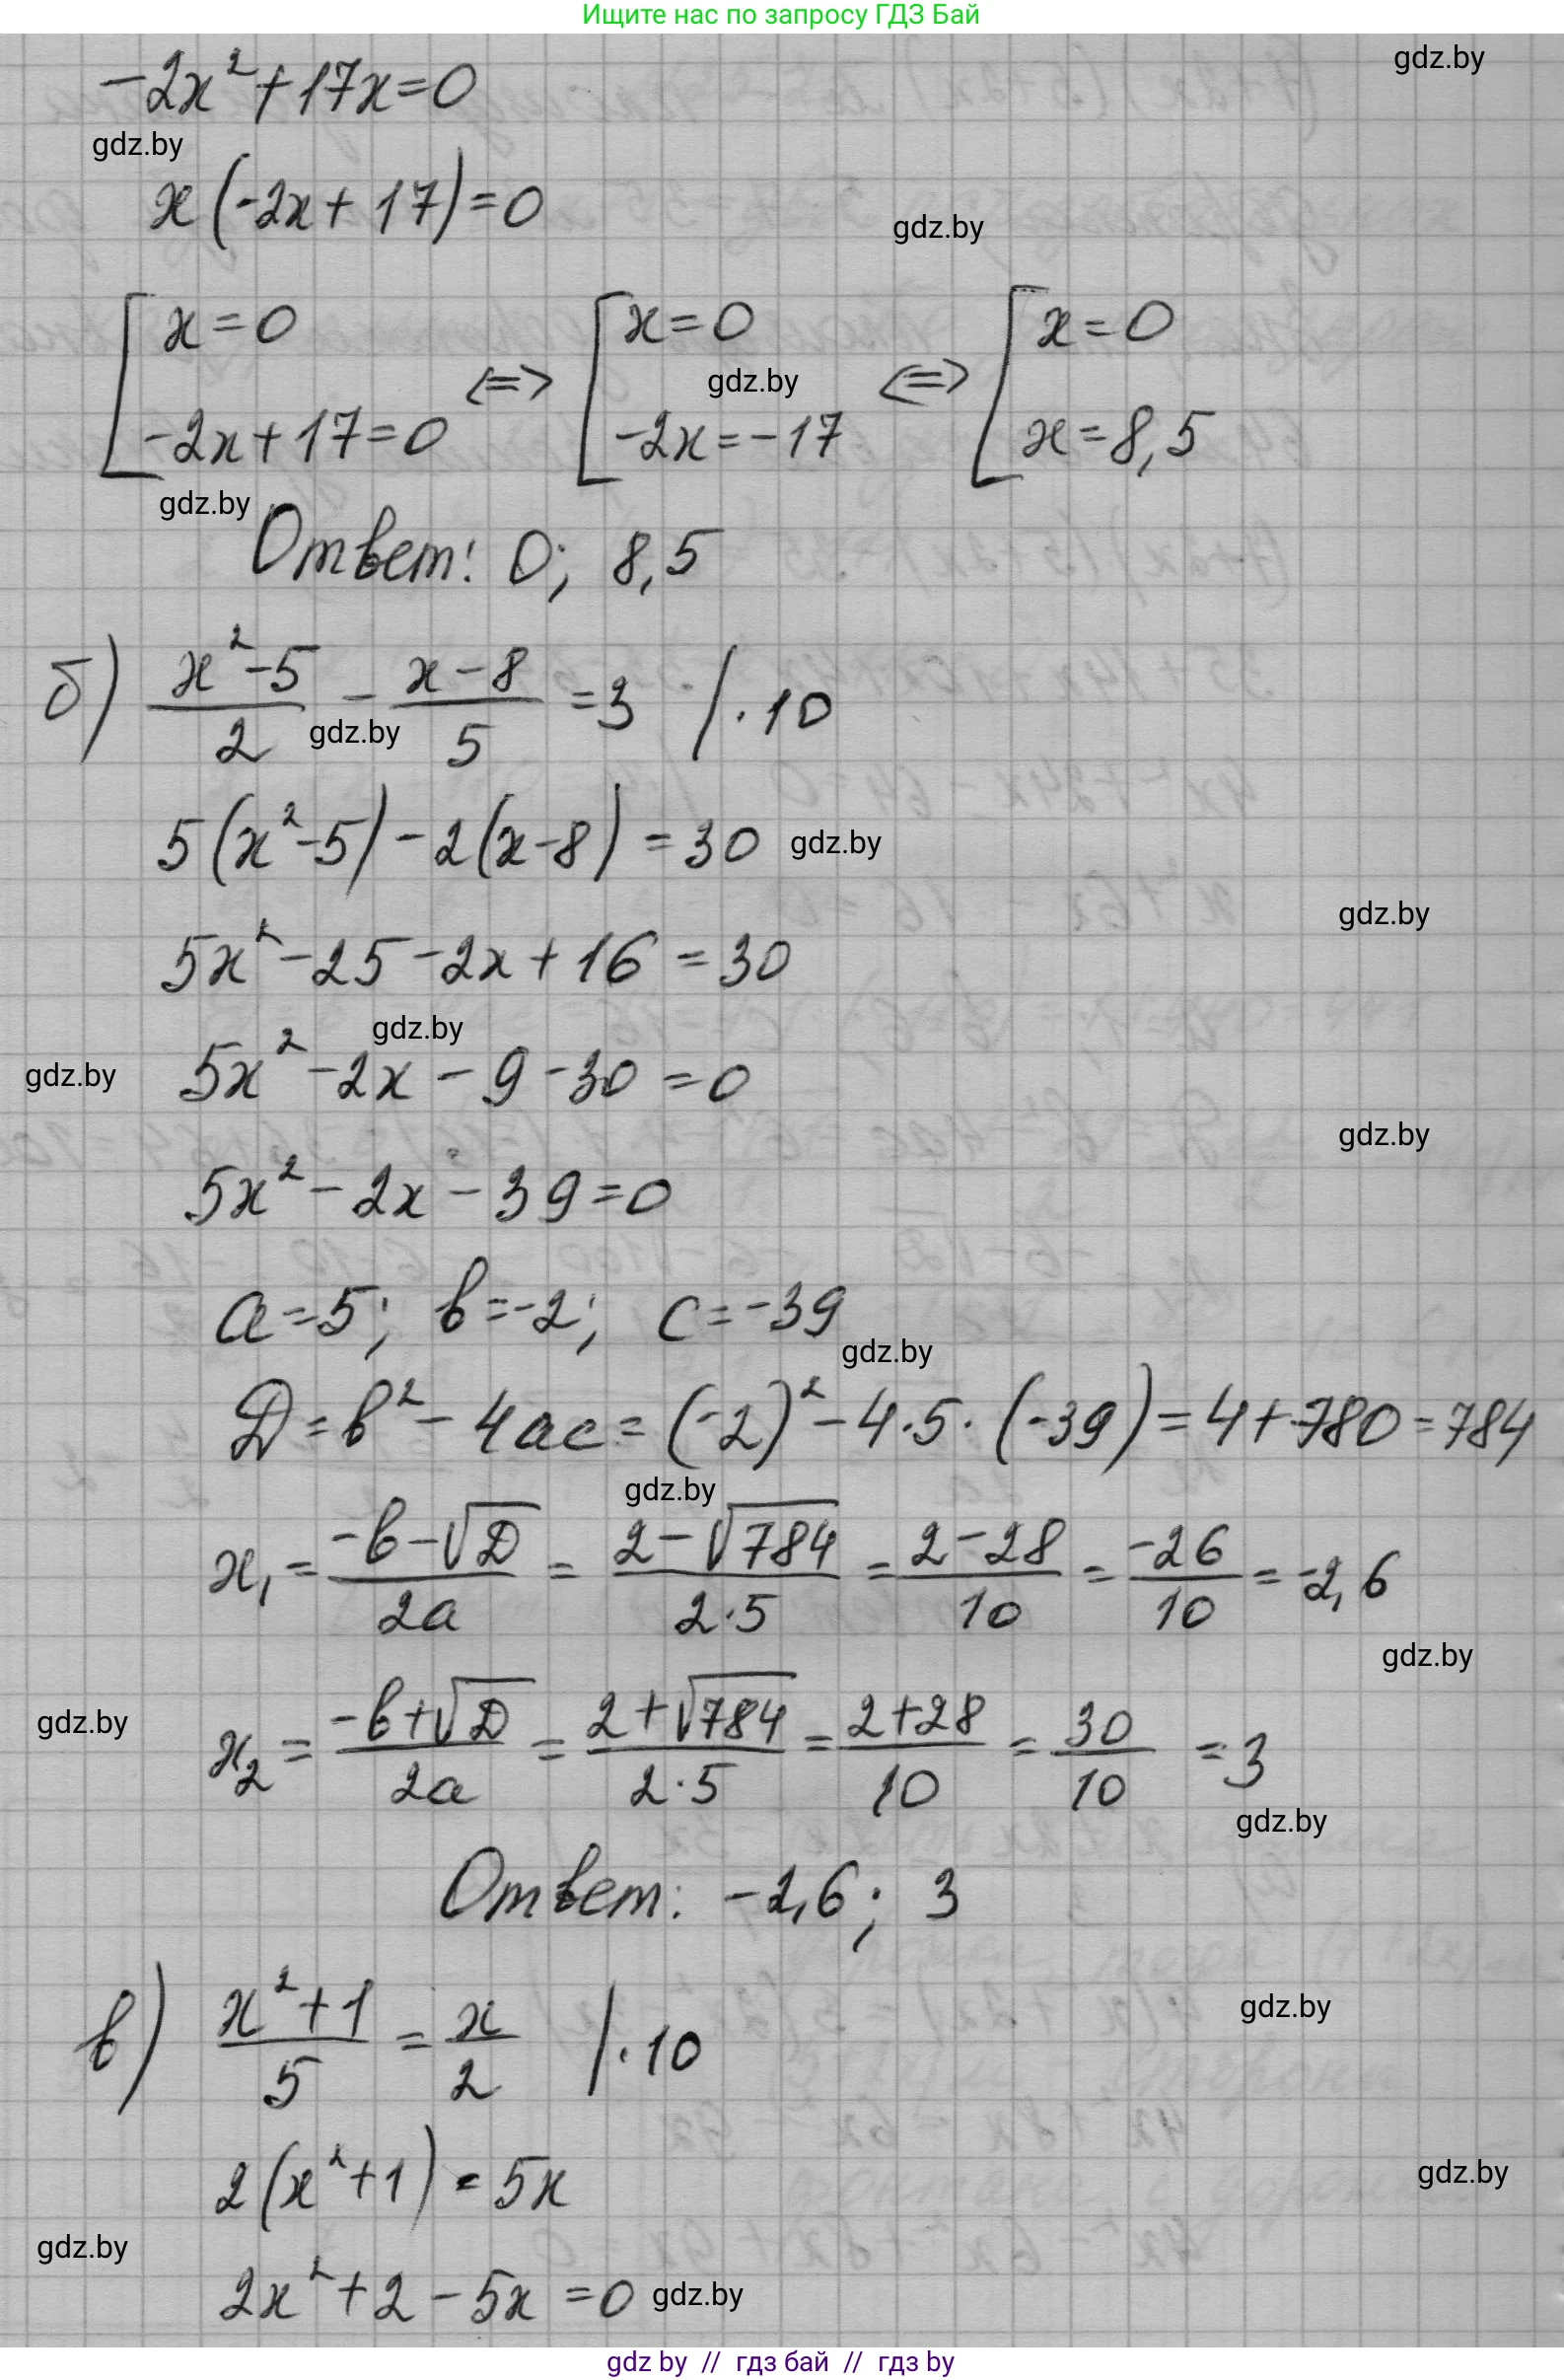 Ищите нас по запросу ГДЗ Бай
gdz.by
-2x²+17x=0
gdz.by
x(-2x+17)=0
gdz.by
[x=0 <=> [x=0 <=> [x=0
gdz.by
-2x+17=0 -2x=-17 x=8,5
gdz.by
Ответ: 0; 8,5
б) (x²-5)/2 - (x-8)/5 =3 /·10
gdz.by
5(x²-5)-2(x-8)=30 gdz.by
gdz.by
5x²-25-2x+16=30
gdz.by
gdz.by 5x²-2x-9-30=0
gdz.by
5x²-2x-39=0
a=5; b=-2; c=-39
gdz.by
D=b²-4ac=(-2)²-4·5·(-39)=4+780=784
gdz.by
x₁=(-b-√D)/2a=(2-√784)/2·5=(2-28)/10=-26/10=-2,6
gdz.by
gdz.by
x₂=(-b+√D)/2a=(2+√784)/2·5=(2+28)/10=30/10=3
gdz.by
Ответ: -2,6; 3
в) (x²+1)/5=x/2 /·10
gdz.by
2(x²+1)=5x
gdz.by
gdz.by
2x²+2-5x=0 gdz.by
gdz by // гдз бай // гдз by